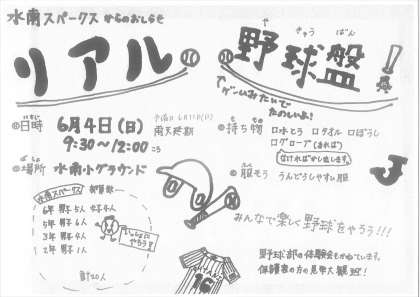 水南スパークスからのおしらせ
リアル野球盤!
ゲームみたいで
たのしいよ!
◎日時 6月4日(日)
雨天延期
9:30〜12:00
◎持ち物 □水とう □タオル □ぼうし
□グローブ(あれば)
なければかし出します。
◎場所 水南小グラウンド
◎服そう うんどうしやすい服
水南スパークス 部員数
6年 男子5人 女子4人
5年 男子6人
3年 男子4人
2年 男子1人
いっしょに
やろう!
計20人
みんなで楽しく野球をやろう!!!
野球部の体験会もかねています。
保護者の方の見学大歓迎!
16